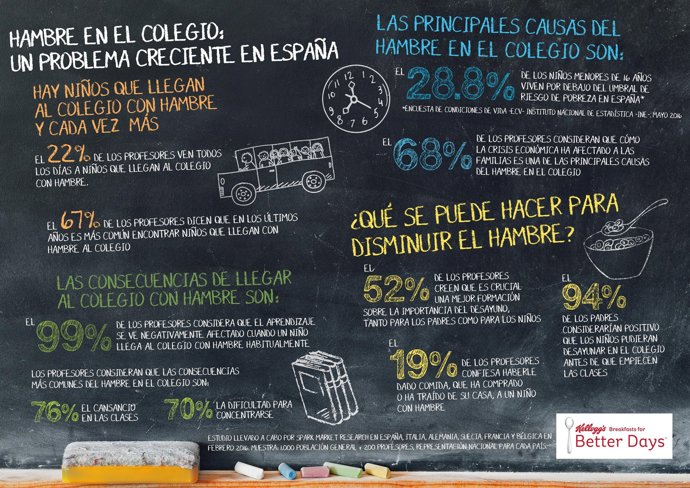 HAMBRE EN EL COLEGIO:
UN PROBLEMA CRECIENTE EN ESPAÑA
HAY NIÑOS QUE LLEGAN
AL COLEGIO CON HAMBRE
Y CADA VEZ MÁS
EL 22% DE LOS PROFESORES VEN TODOS
LOS DÍAS A NIÑOS QUE LLEGAN AL COLEGIO
CON HAMBRE.
EL 67% DE LOS PROFESORES DICEN QUE EN LOS ÚLTIMOS
AÑOS ES MÁS COMÚN ENCONTRAR NIÑOS QUE LLEGAN CON
HAMBRE AL COLEGIO
LAS CONSECUENCIAS DE LLEGAR
AL COLEGIO CON HAMBRE SON:
EL 99% DE LOS PROFESORES CONSIDERA QUE EL APRENDIZAJE
SE VE NEGATIVAMENTE AFECTADO CUANDO UN NIÑO
LLEGA AL COLEGIO CON HAMBRE HABITUALMENTE.
LOS PROFESORES CONSIDERAN QUE LAS CONSECUENCIAS
MÁS COMUNES DEL HAMBRE EN EL COLEGIO SON:
76% EL CANSANCIO
EN LAS CLASES
70% LA DIFICULTAD PARA
CONCENTRARSE.
12 1 2 3 4 5 6 7 8 9 10 11
LAS PRINCIPALES CAUSAS DEL
HAMBRE EN EL COLEGIO SON:
EL 28.8% DE LOS NIÑOS MENORES DE 16 AÑOS
VIVEN POR DEBAJO DEL UMBRAL DE
RIESGO DE POBREZA EN ESPAÑA*
*ENCUESTA DE CONDICIONES DE VIDA -ECV- INSTITUTO NACIONAL DE ESTADÍSTICA -INE-. MAYO 2016
EL 68% DE LOS PROFESORES CONSIDERAN QUE CÓMO
LA CRISIS ECONÓMICA HA AFECTADO A LAS
FAMILIAS ES UNA DE LAS PRINCIPALES CAUSAS
DEL HAMBRE EN EL COLEGIO
¿QUÉ SE PUEDE HACER PARA
DISMINUIR EL HAMBRE?
EL 52% DE LOS PROFESORES
CREEN QUE ES CRUCIAL
UNA MEJOR FORMACIÓN
SOBRE LA IMPORTANCIA DEL DESAYUNO,
TANTO PARA LOS PADRES COMO PARA LOS NIÑOS
EL 19% DE LOS PROFESORES
CONFIESA HABERLE
DADO COMIDA, QUE HA COMPRADO
O HA TRAÍDO DE SU CASA, A UN NIÑO
CON HAMBRE
EL 94%
DE LOS PADRES
CONSIDERARÍAN POSITIVO
QUE LOS NIÑOS PUDIERAN
DESAYUNAR EN EL COLEGIO
ANTES DE QUE EMPIECEN
LAS CLASES
ESTUDIO LLEVADO A CABO POR SPARK MARKET RESEARCH EN ESPAÑA, ITALIA, ALEMANIA, SUECIA, FRANCIA Y BÉLGICA EN
FEBRERO 2016. MUESTRA: 1.000 POBLACIÓN GENERAL + 200 PROFESORES, REPRESENTACIÓN NACIONAL PARA CADA PAÍS
Kellogg's Breakfasts for
Better Days